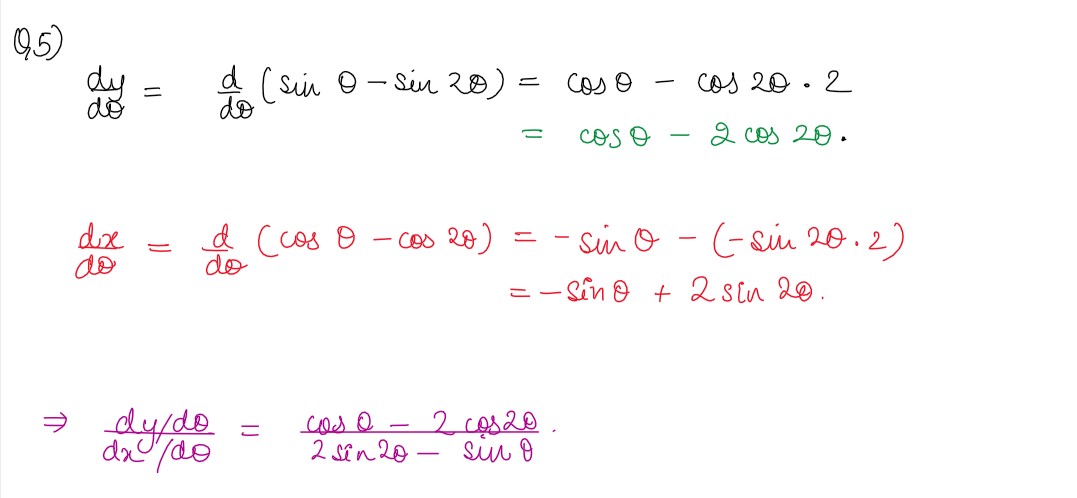 Q5)
dy/dθ = d/dθ (sin θ - sin 2θ) = cos θ - cos 2θ . 2
= cos θ - 2 cos 2θ.
dx/dθ = d/dθ (cos θ - cos 2θ) = - sin θ - (- sin 2θ . 2)
= - sin θ + 2 sin 2θ.
⇒ (dy/dθ)/(dx/dθ) = (cos θ - 2 cos 2θ)/(2 sin 2θ - sin θ) .